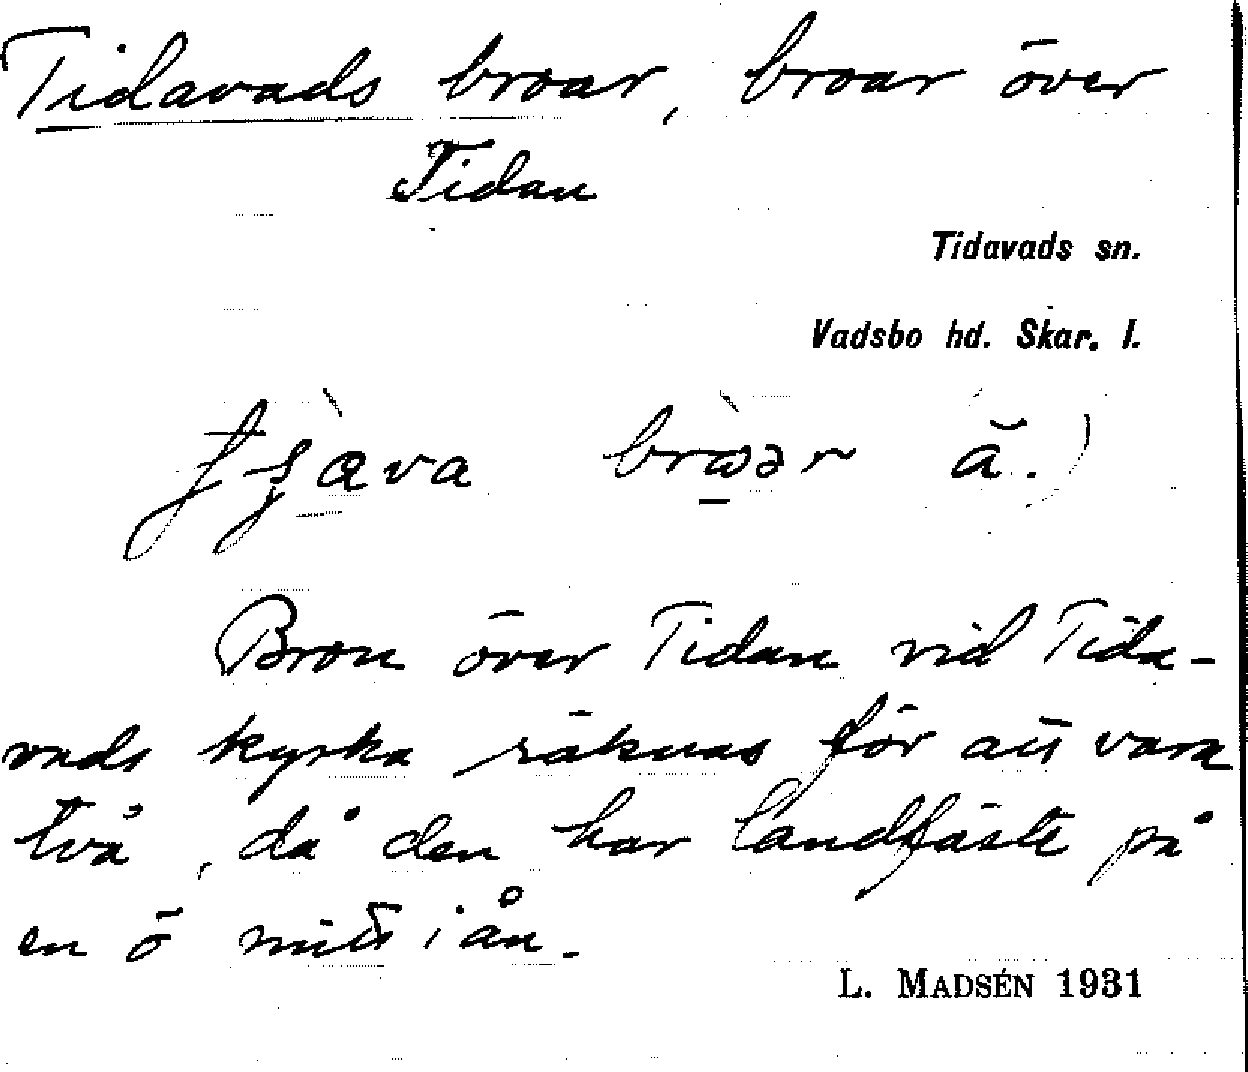 Tidavads broar, broar över
Tidan
Tidavads sn.
Vadsbo hd. Skar. l.
bròər ă.)
Bron över Tidan vid Tida-
vads kyrka räknas för att vara
två, då den har landfäste på
en ö mitt i ån.
L. MADSÉN 1931